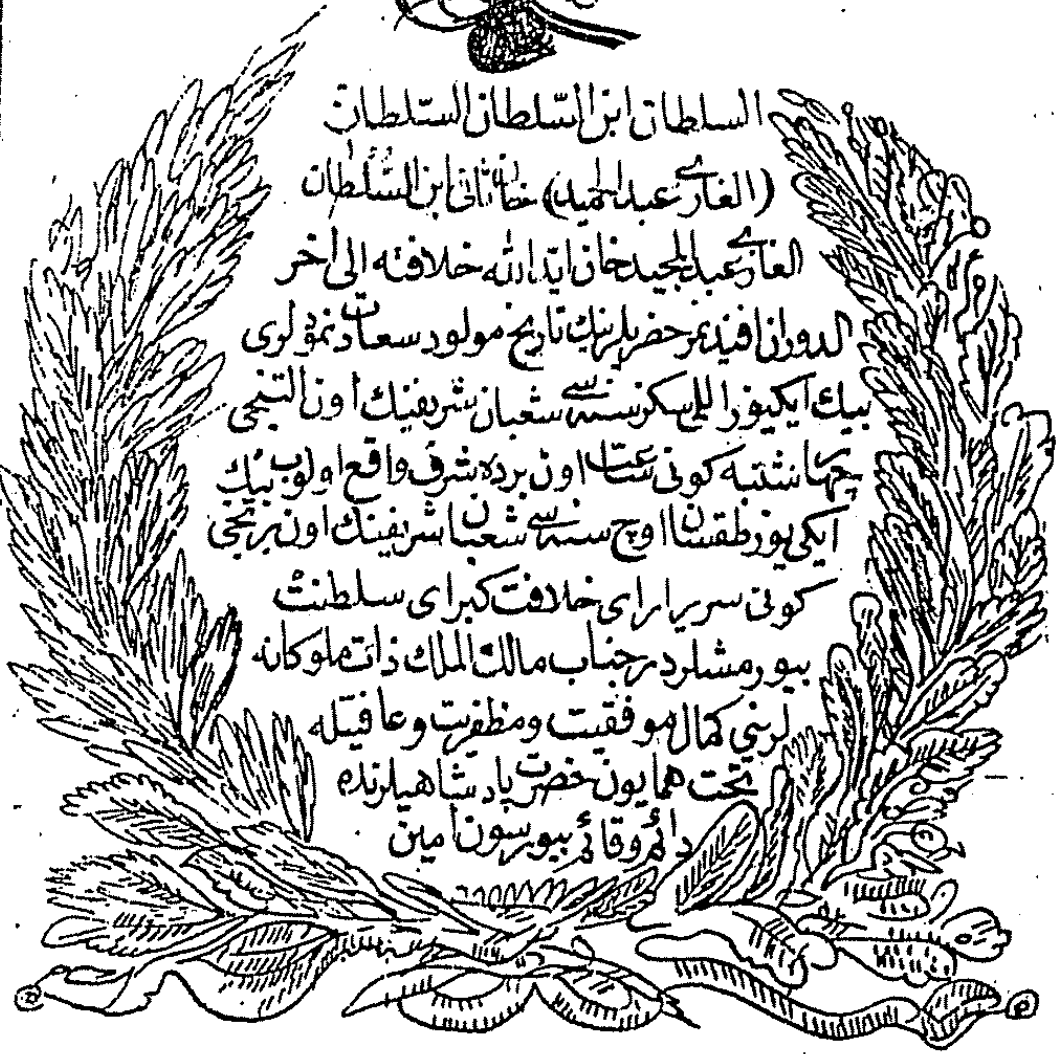 السلطان ابن السّلطان السّلطان
(الغازى عبد الحميد) خان ثانى ابن السُّلطان
الغازى عبد المجيد خان ايّد الله خلافته الى اخر
الدوران افنديمز حضرتلرينك تاريخ مولود سعادتنمودلرى
بيك ايكيوز اللى سكز سنه سى شعبان شريفينك اون التنجى
چهارشنبه كونى ساعت اون برده شرف واقع اولوب بيك
ايكيوز طقسان اوچ سنه سى شعبان شريفينك اون برنجى
كونى سرير اراى خلافت كبراى سلطنت
بيورمشلردر جناب مالك الملك ذات ملوكانه
لرينى كمال موفقيت ومظفريت وعافيتله
تخت همايون حضرت پادشاهيلرنده
دائم وقائم بيورسون امين